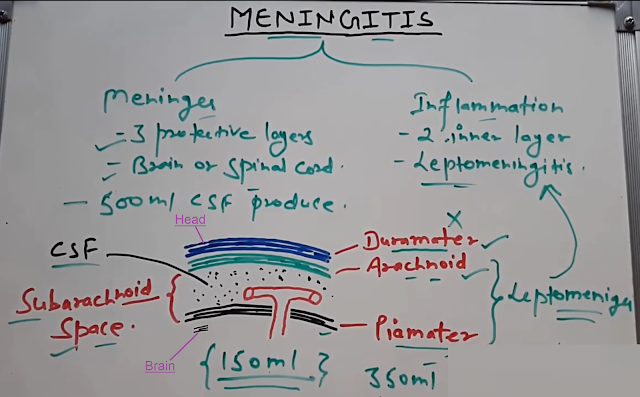 MENINGITIS
Meninges
- 3 protective layers
- Brain or Spinal cord.
- 500ml CSF produce.
Inflammation
- 2 inner layer
- Leptomeningitis.
Head
X
CSF
Duramater
Arachnoid
Subarachnoid
Space.
Leptomeninges
Piamater
Brain
{150ml}
350ml